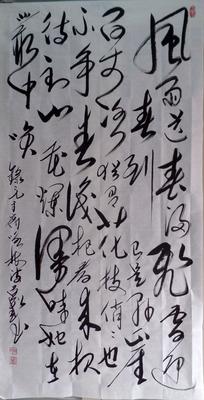 風雨送春歸飛雪迎
春到已是懸崖
百丈冰猶有花枝俏俏也
不争春只把春来报
待到山花爛漫時她在
叢中笑